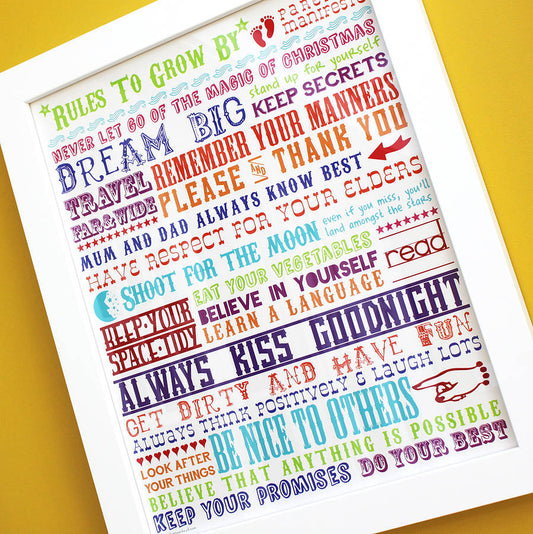 PARENT
MANIFESTO
RULES TO GROW BY
NEVER LET GO OF THE MAGIC OF CHRISTMAS
DREAM BIG
stand up for yourself
KEEP SECRETS
TRAVEL
FAR & WIDE
REMEMBER YOUR MANNERS
PLEASE AND THANK YOU
MUM AND DAD ALWAYS KNOW BEST
HAVE RESPECT FOR YOUR ELDERS
SHOOT FOR THE MOON
even if you miss, you'll
land amongst the stars
EAT YOUR VEGETABLES
KEEP·YOUR
SPACE·TIDY
BELIEVE IN YOURSELF
LEARN A LANGUAGE
read
ALWAYS KISS GOODNIGHT
GET DIRTY AND HAVE FUN
Always think positively & laugh lots
LOOK AFTER
YOUR THINGS
BE NICE TO OTHERS
BELIEVE THAT ANYTHING IS POSSIBLE
KEEP YOUR PROMISES
DO YOUR BEST